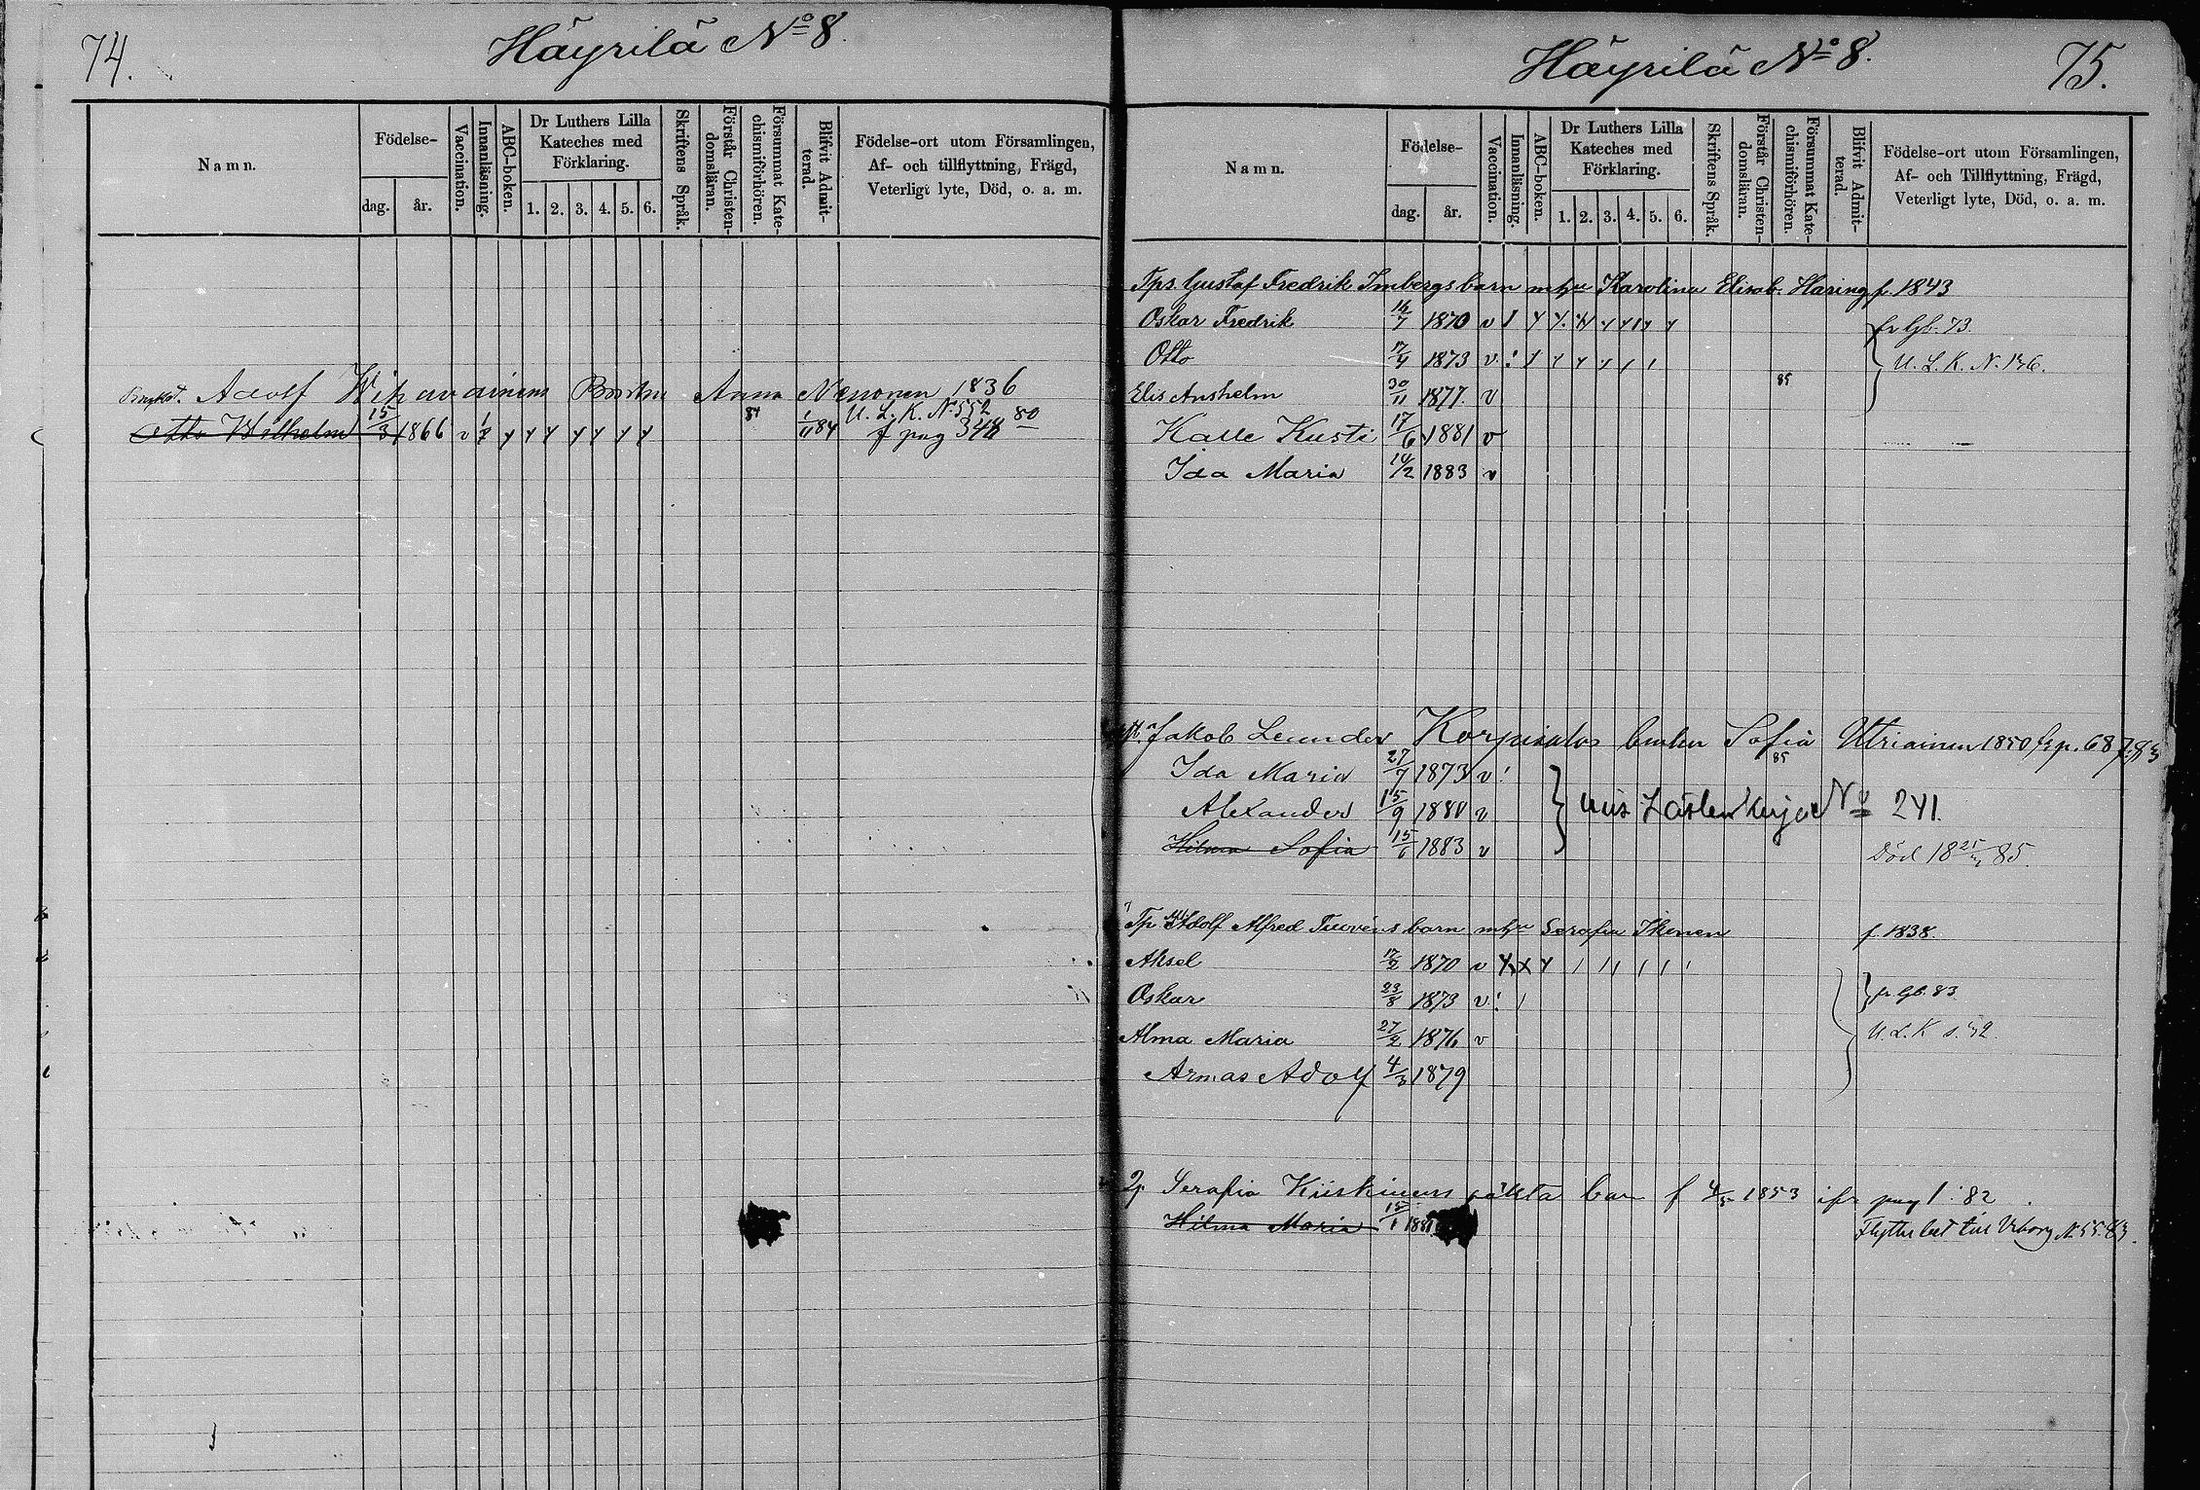 74.
Häyrilä No 8.
Namn.
Födelse-
dag.
år.
Vaccination.
Innanläsning.
ABC-boken.
Dr Luthers Lilla
Kateches med
Förklaring.
1. 2. 3. 4. 5. 6.
Skriftens Språk.
Förstår Christen-
domsläran.
Försummat Kate-
chismiförhören.
Blifvit Admit-
terad.
Födelse-ort utom Församlingen,
Af- och tillflyttning, Frägd,
Veterligt lyte, Död, o. a. m.
Adolf Barn Anna Nenonen 1836
84
U. L. K. No 552 80
Otto Wilhelm 15/3 1866 v 1/11 84 f pag 348
Häyrilä No 8.
75.
Namn.
Födelse-
dag.
år.
Vaccination.
Innanläsning.
ABC-boken.
Dr Luthers Lilla
Kateches med
Förklaring.
1. 2. 3. 4. 5. 6.
Skriftens Språk.
Förstår Christen-
domsläran.
Försummat Kate-
chismiförhören.
Blifvit Admit-
terad.
Födelse-ort utom Församlingen,
Af- och Tillflyttning, Frägd,
Veterligt lyte, Död, o. a. m.
Tps. Gustaf Fredrik Imbergs barn m hu Karolina Elisab. Haring f. 1843
Oskar Fredrik 1870 v fr Gb. 73.
Otto 1873 v U. L. K. N. 136.
85
Elis Anshelm 30/11 1877. v
Kalle Kusti 17/6 1881 v
Ida Maria 14/2 1883 v
Jakob Leander Sofia Utriainen 1850 p. 68
85
Ida Maria 27/7 1873 v
Alexander 15/9 1880 v uus Lastenkirja No 241.
Hilma Sofia 15/6 1883 v Död 85.
Tp Adolf Alfred Tuovens barn m hu Serafia Ikonen f. 1838.
Aksel 1870 v
Oskar 23/8 1873 v fr. Gb. 83
Alma Maria 27/2 1876 v U. L. K
Armas Adolf 4/3 1879
Serafia Kiiskinens oäkta barn f 1853 pag 1 82
Hilma Maria 15/1 1881 till Viborg N 55. 83.